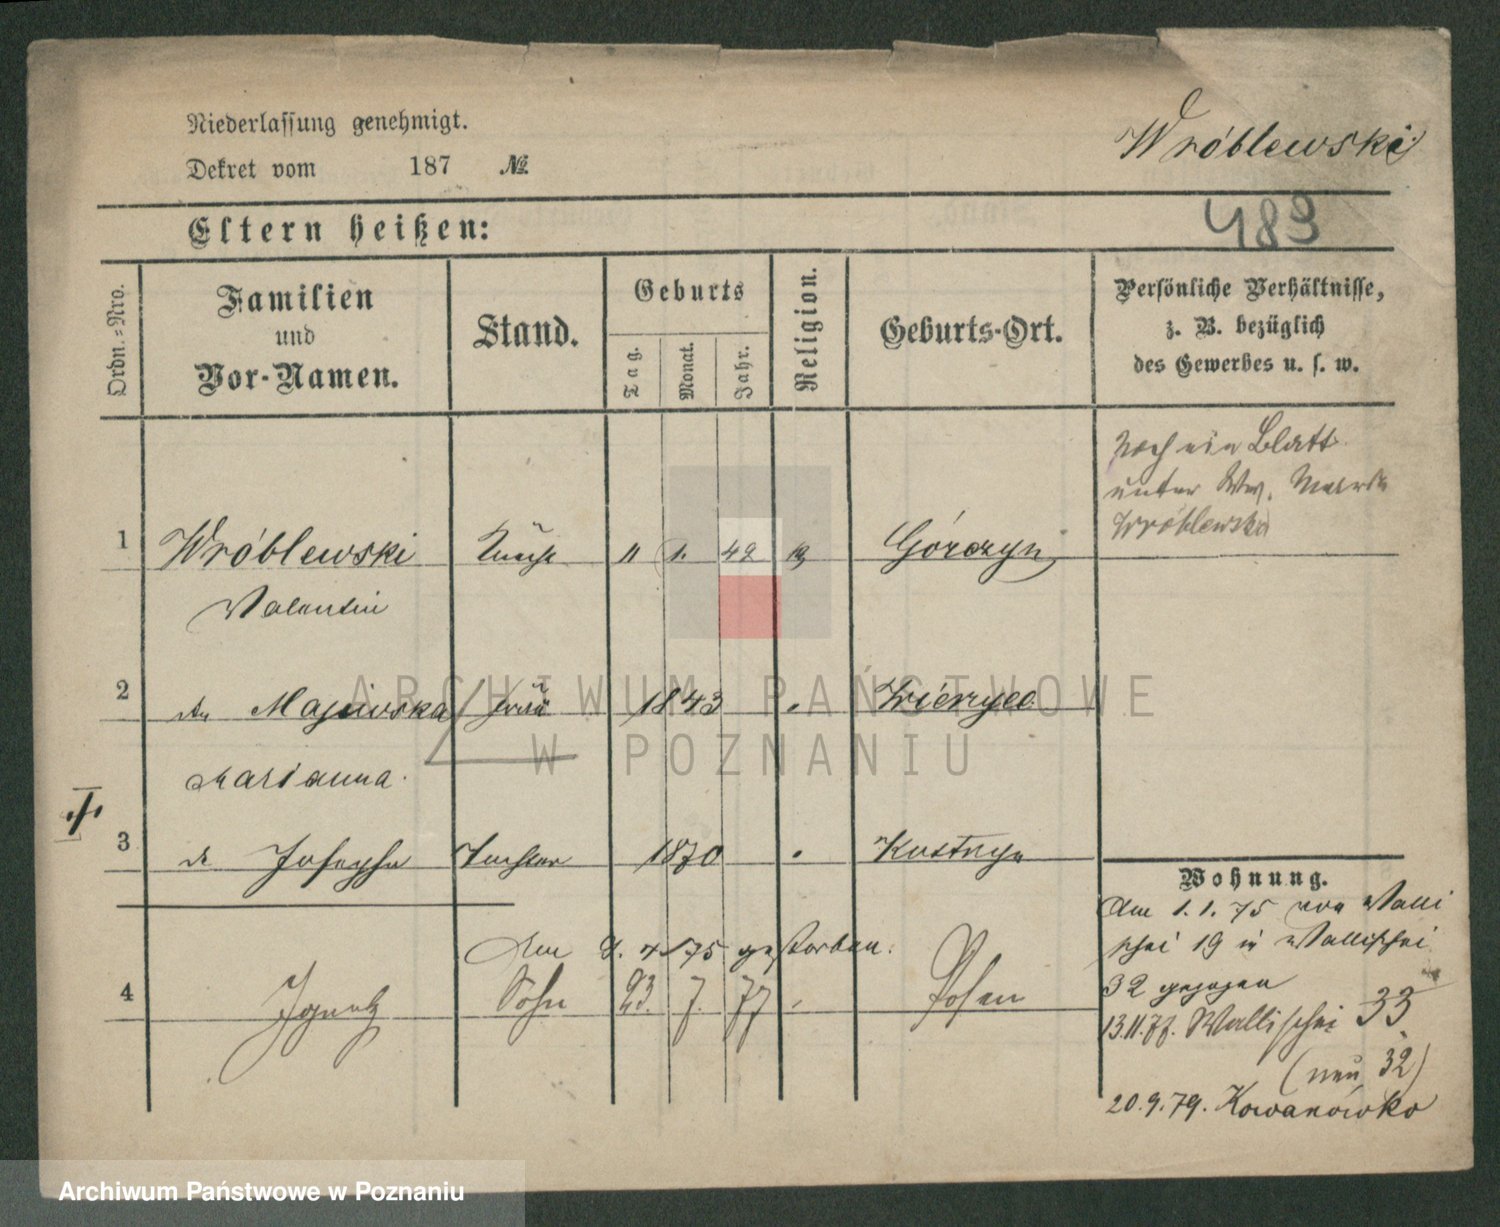 Niederlassung genehmigt.
Wróblewski
Dekret vom 187 №
Eltern heißen:
483
Ordn.-Nro.
Familien
und
Vor-Namen.
Stand.
Geburts
Tag.
Monat.
Jahr.
Religion.
Geburts-Ort.
Persönliche Verhältnisse,
z. B. bezüglich
des Gewerbes u. s. w.
noch ein Blatt
unter Ww.
Wróblewska
1 Wróblewski 11 1. 42 Górczyn
Valentin
2 Majewska Frau 1843
Marianna
3 Josepha Tochter 1870 Kostrzyn
Wohnung.
Am 1.1.75 von Walli
schei 19 in Wallischei
32 gezogen
Am 9. 4. 75 gestorben.
4 Ignatz Sohn 23. 7. 77 Posen
13.11.77. Wallischei 33
(neu 32)
20.9.79. Kowanówko
ARCHIWUM PAŃSTWOWE
W POZNANIU
Archiwum Państwowe w Poznaniu